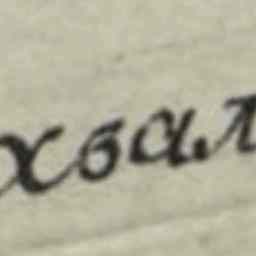 хвал